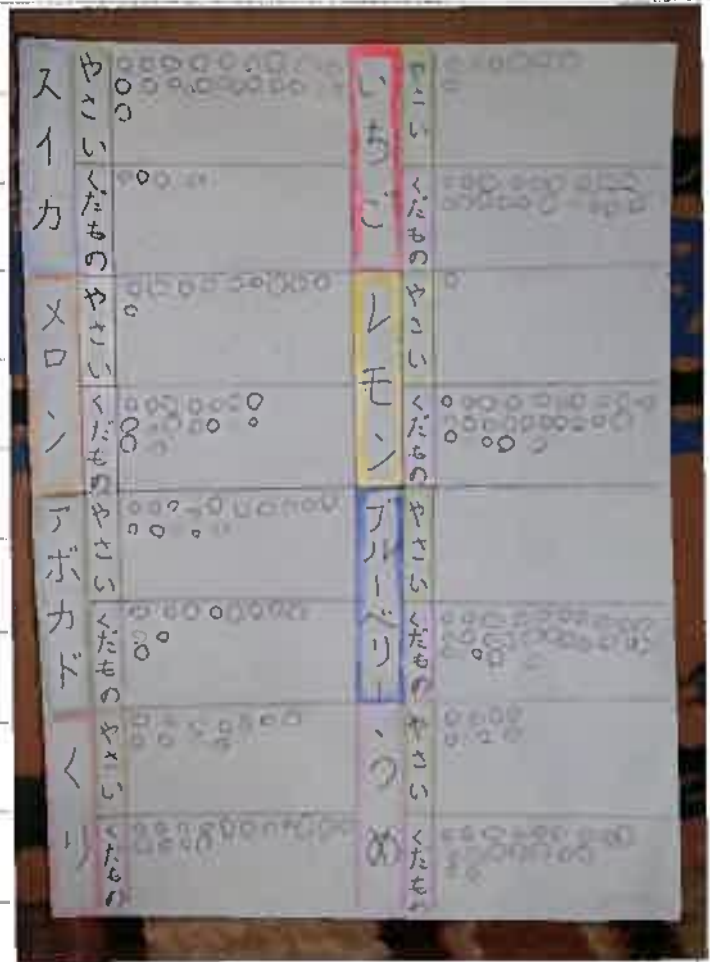 スイカ
やさい
くだもの
メロン
やさい
くだもの
アボカド
やさい
くだもの
くり
やさい
くだもの
いちご
やさい
くだもの
レモン
やさい
くだもの
ブルーベリー
やさい
くだもの
うめ
やさい
くだもの